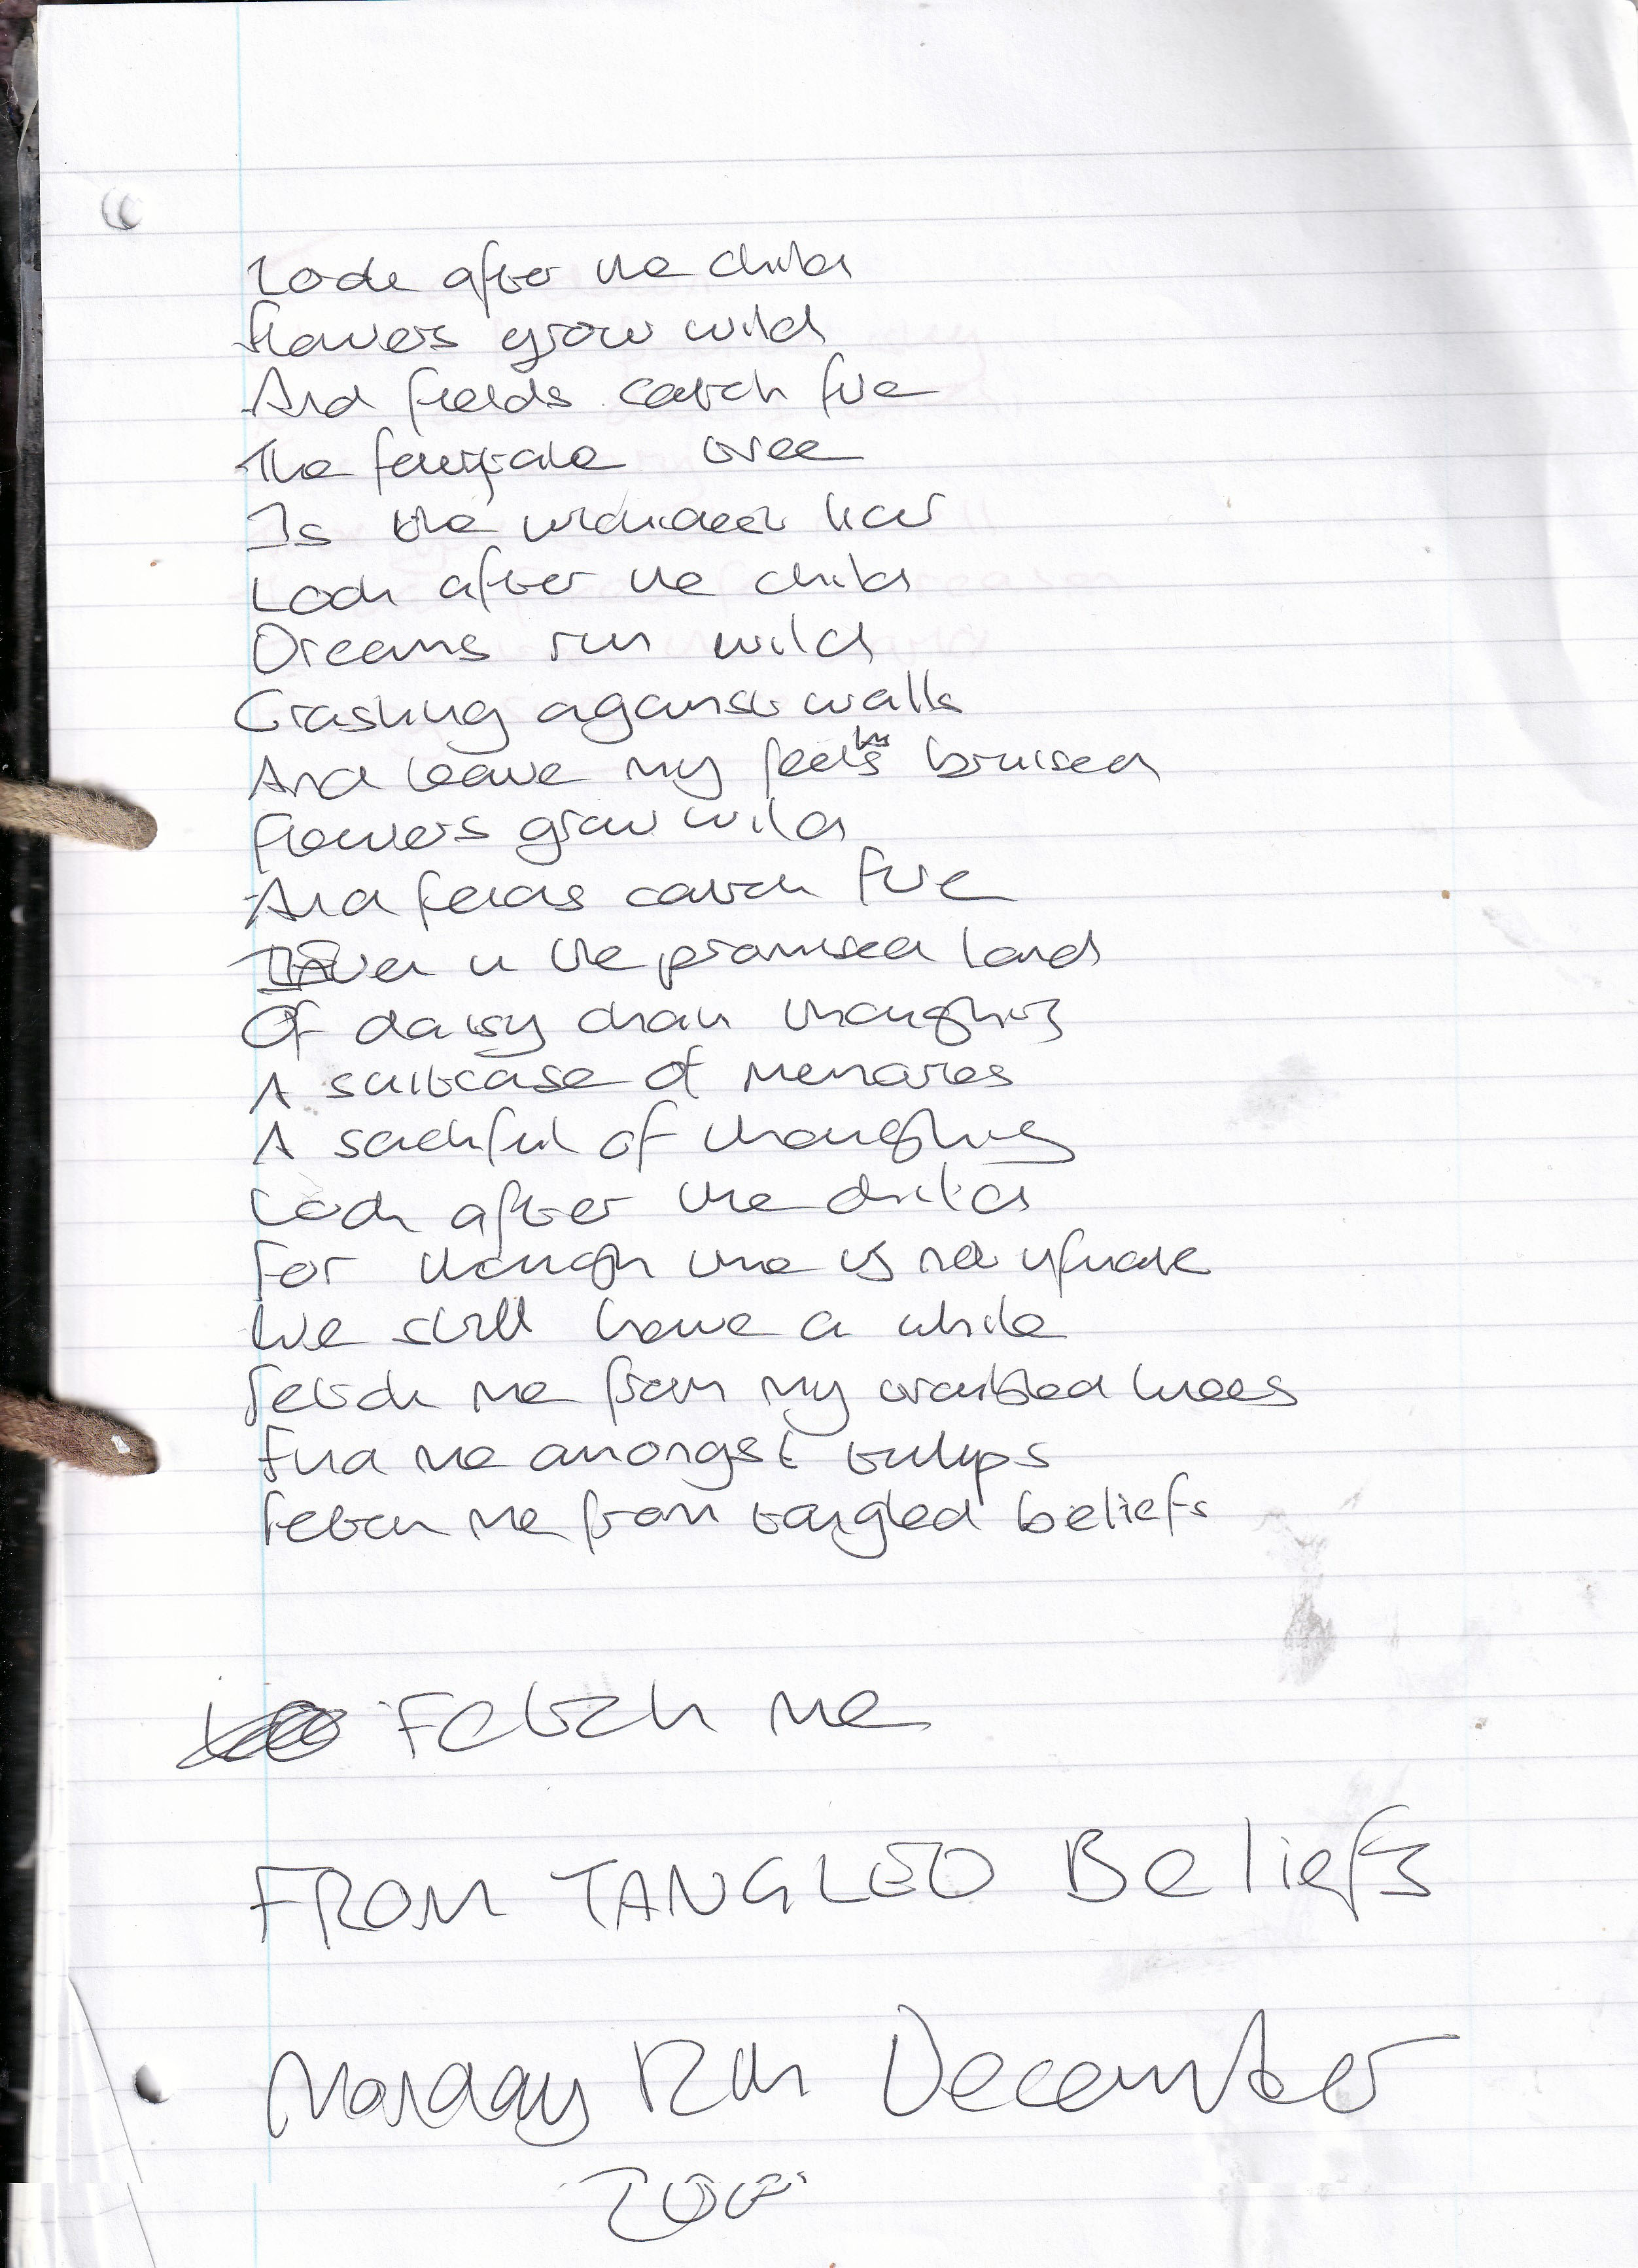 Look after the child
Flowers grow wild
And fields catch fire
The fairytale tree
Is the wickedest liar
Look after the child
Dreams run wild
Crashing against walls
And leave my feelings bruised
Flowers grow wild
And fields catch fire
in the promised land
Of daisy chain thoughts
A suitcase of memories
A sackful of thoughts
Look after the child
For though time is not infinite
We still have a while
Fetch me from my troubled knees
Find me amongst tulips
Fetch me from tangled beliefs
Fetch me
FROM TANGLED Beliefs
Monday 12th December